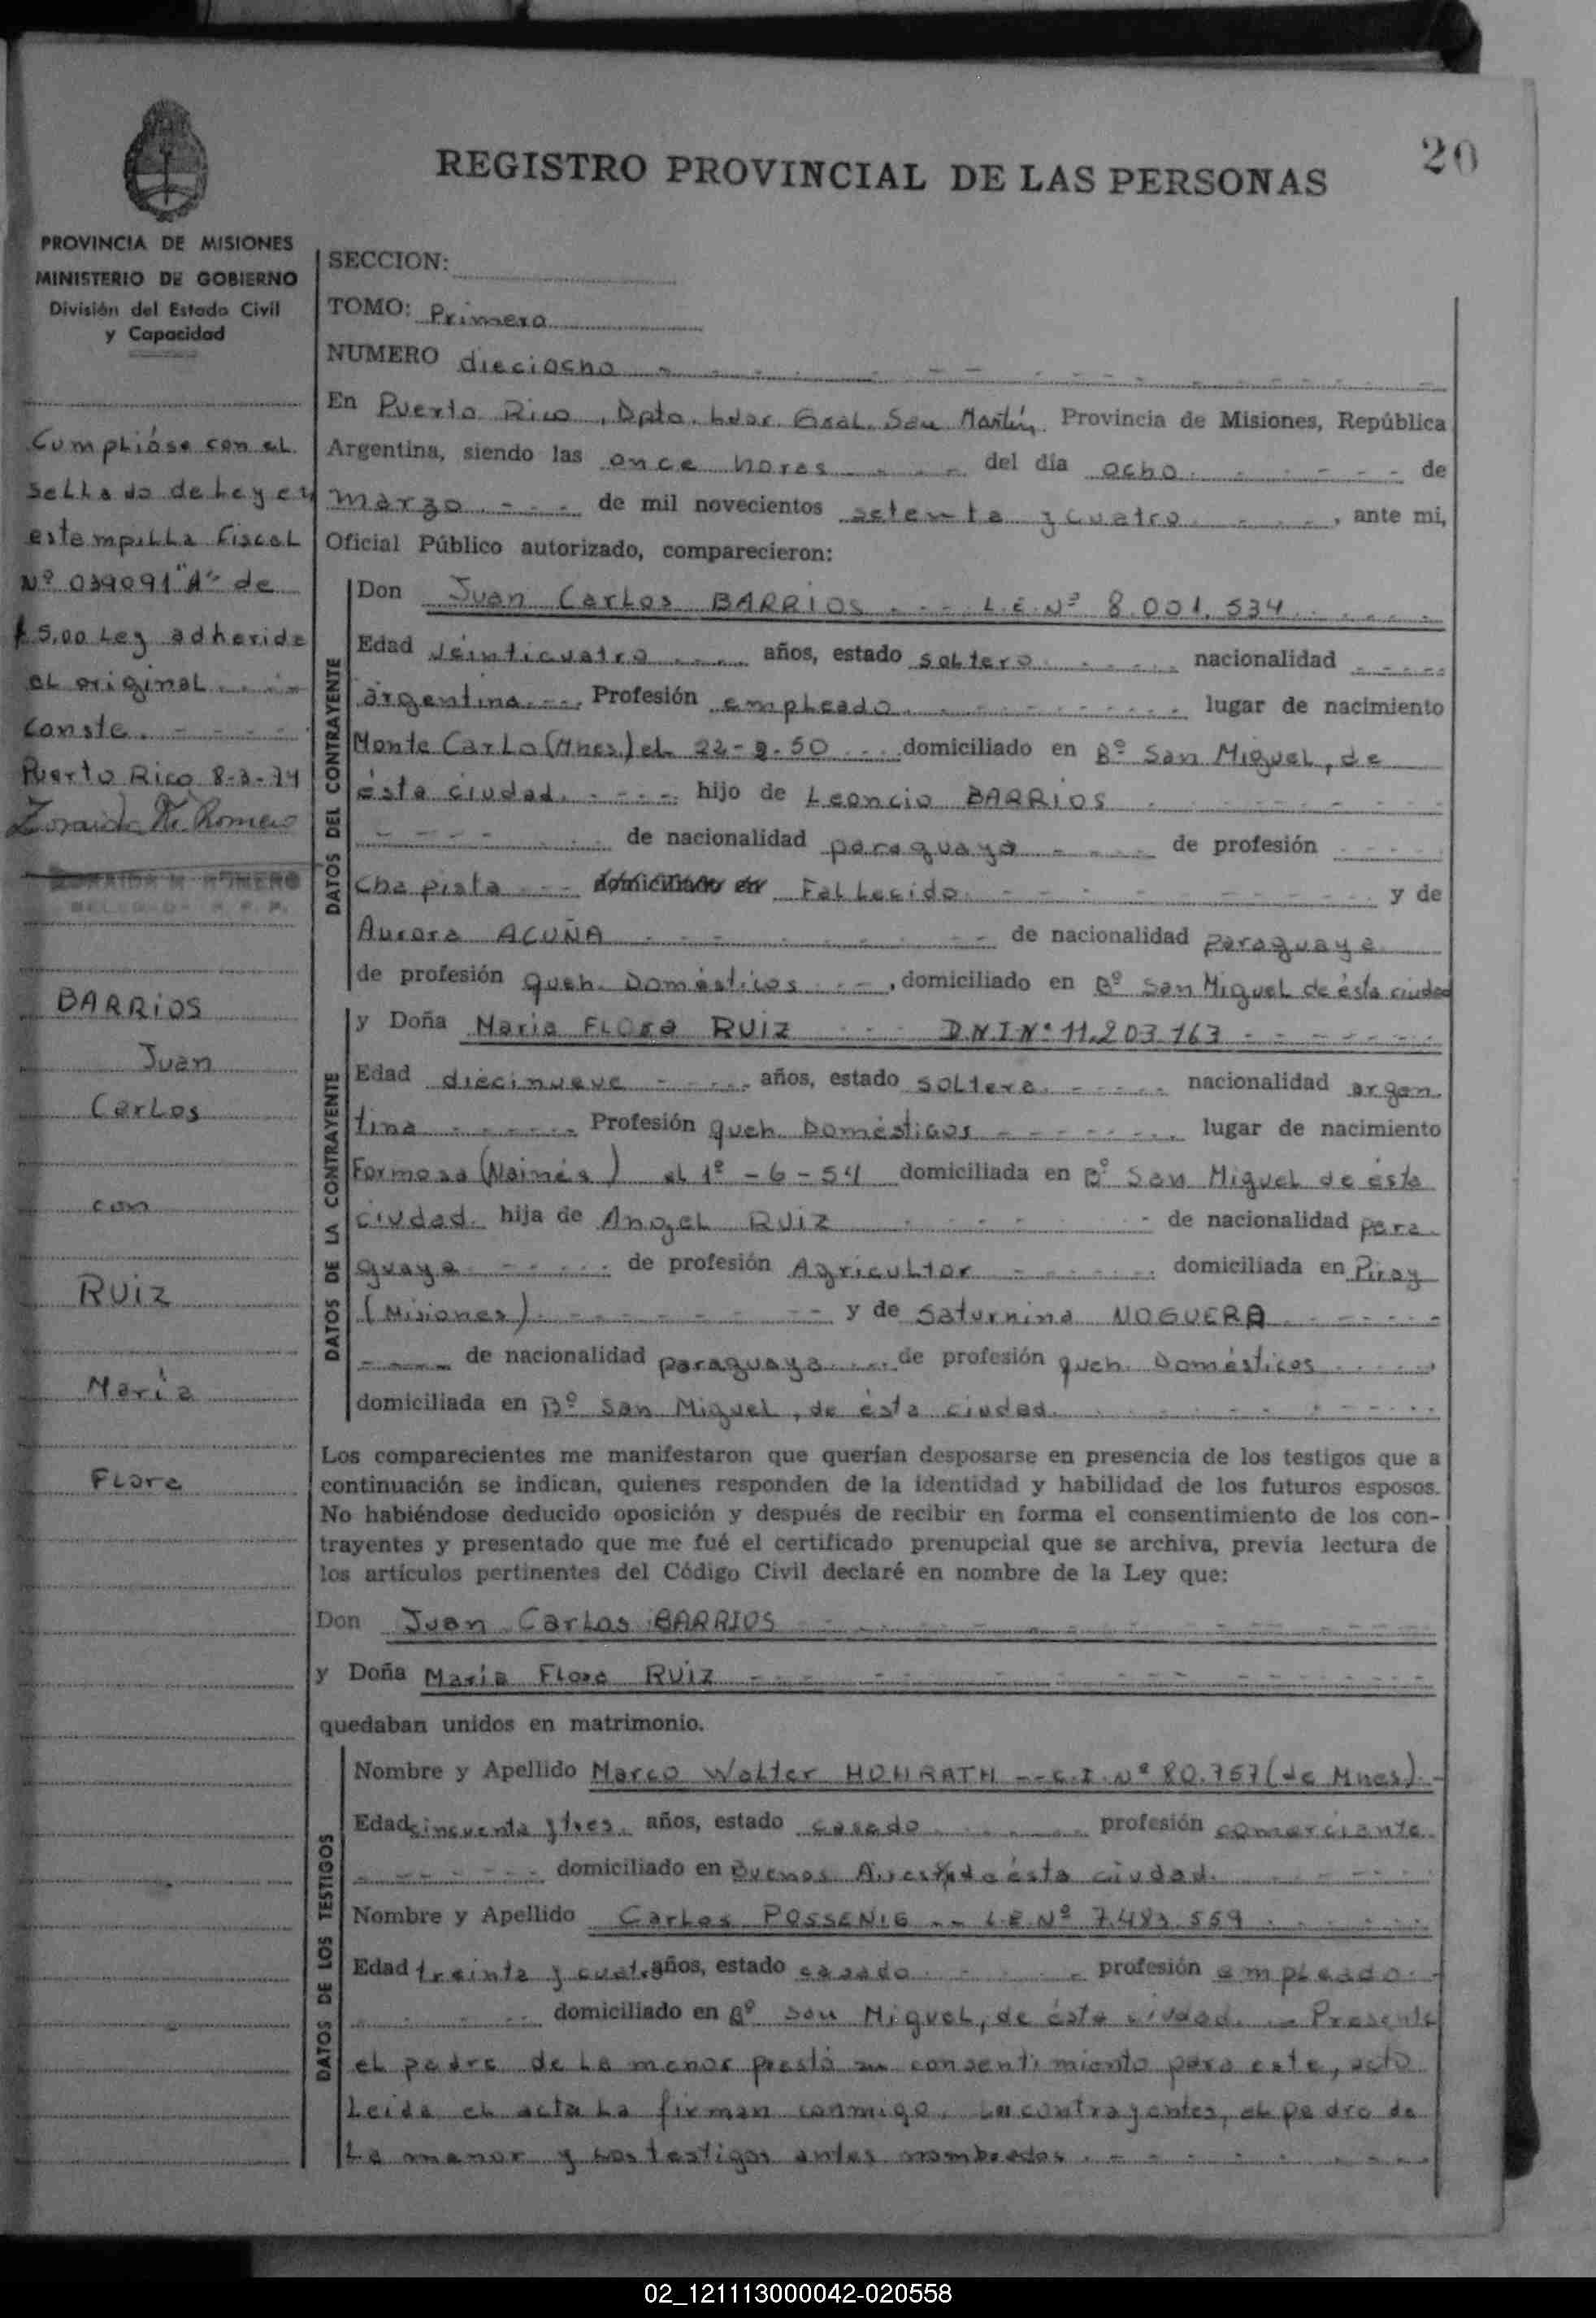 20
REGISTRO PROVINCIAL DE LAS PERSONAS
PROVINCIA DE MISIONES
MINISTERIO DE GOBIERNO
División del Estado Civil
y Capacidad
Cumplióse con el
sellado de Ley en
estampilla fiscal
Nº 039091 "A" de
$ 5,00 Ley adherida
al original
Conste.
Puerto Rico 8-3-74
BARRIOS
Juan
Carlos
con
RUIZ
María
Flora
SECCION:
TOMO: Primero
NUMERO dieciocho
En Puerto Rico, Dpto. Ldor. Gral. San Martín. Provincia de Misiones, República
Argentina, siendo las once horas del día ocho de
marzo de mil novecientos setenta y cuatro, ante mi,
Oficial Público autorizado, comparecieron:
DATOS DEL CONTRAYENTE
Don Juan Carlos BARRIOS L.E. Nº 8.001.534
Edad veinticuatro años, estado soltero nacionalidad
argentina. Profesión empleado lugar de nacimiento
Monte Carlo (Mnes) el 22-9-50 domiciliado en Bº San Miguel, de
ésta ciudad. hijo de Leoncio BARRIOS
de nacionalidad paraguaya de profesión
Chapista domiciliado en Fallecido. y de
Aurora ACUÑA de nacionalidad paraguaya
de profesión queh. Domésticos, domiciliado en Bº San Miguel de ésta ciudad
DATOS DE LA CONTRAYENTE
y Doña Maria Flora RUIZ D.N.I Nº 11.203.163
Edad diecinueve años, estado soltera nacionalidad argen
tina Profesión queh. Domésticos lugar de nacimiento
Formosa ( ) el 1º-6-54 domiciliada en Bº San Miguel de ésta
ciudad. hija de Angel RUIZ de nacionalidad para
guaya de profesión Agricultor domiciliada en Piray
(Misiones) y de Saturnina NOGUERA
de nacionalidad paraguaya de profesión queh. Domésticos
domiciliada en Bº San Miguel, de ésta ciudad.
Los comparecientes me manifestaron que querían desposarse en presencia de los testigos que a
continuación se indican, quienes responden de la identidad y habilidad de los futuros esposos.
No habiéndose deducido oposición y después de recibir en forma el consentimiento de los con-
trayentes y presentado que me fué el certificado prenupcial que se archiva, previa lectura de
los artículos pertinentes del Código Civil declaré en nombre de la Ley que:
Don Juan Carlos BARRIOS
y Doña María Flora RUIZ
quedaban unidos en matrimonio.
DATOS DE LOS TESTIGOS
Nombre y Apellido Marco Walter HOHRATH C.I. Nº 80.757 (de Mnes).
Edad cincuenta y tres años, estado casado profesión comerciante
domiciliado en Buenos Aires de ésta ciudad.
Nombre y Apellido Carlos POSSENIG L.E. Nº 7.483.559
Edad treinta y cuat. años, estado casado profesión empleado
domiciliado en Bº San Miguel, de ésta ciudad. Presente
el padre de la menor prestó su consentimiento para este, acto
Leida el acta la firman conmigo, los contrayentes, el padre de
la menor y los testigos antes nombrados.
02_121113000042-020558